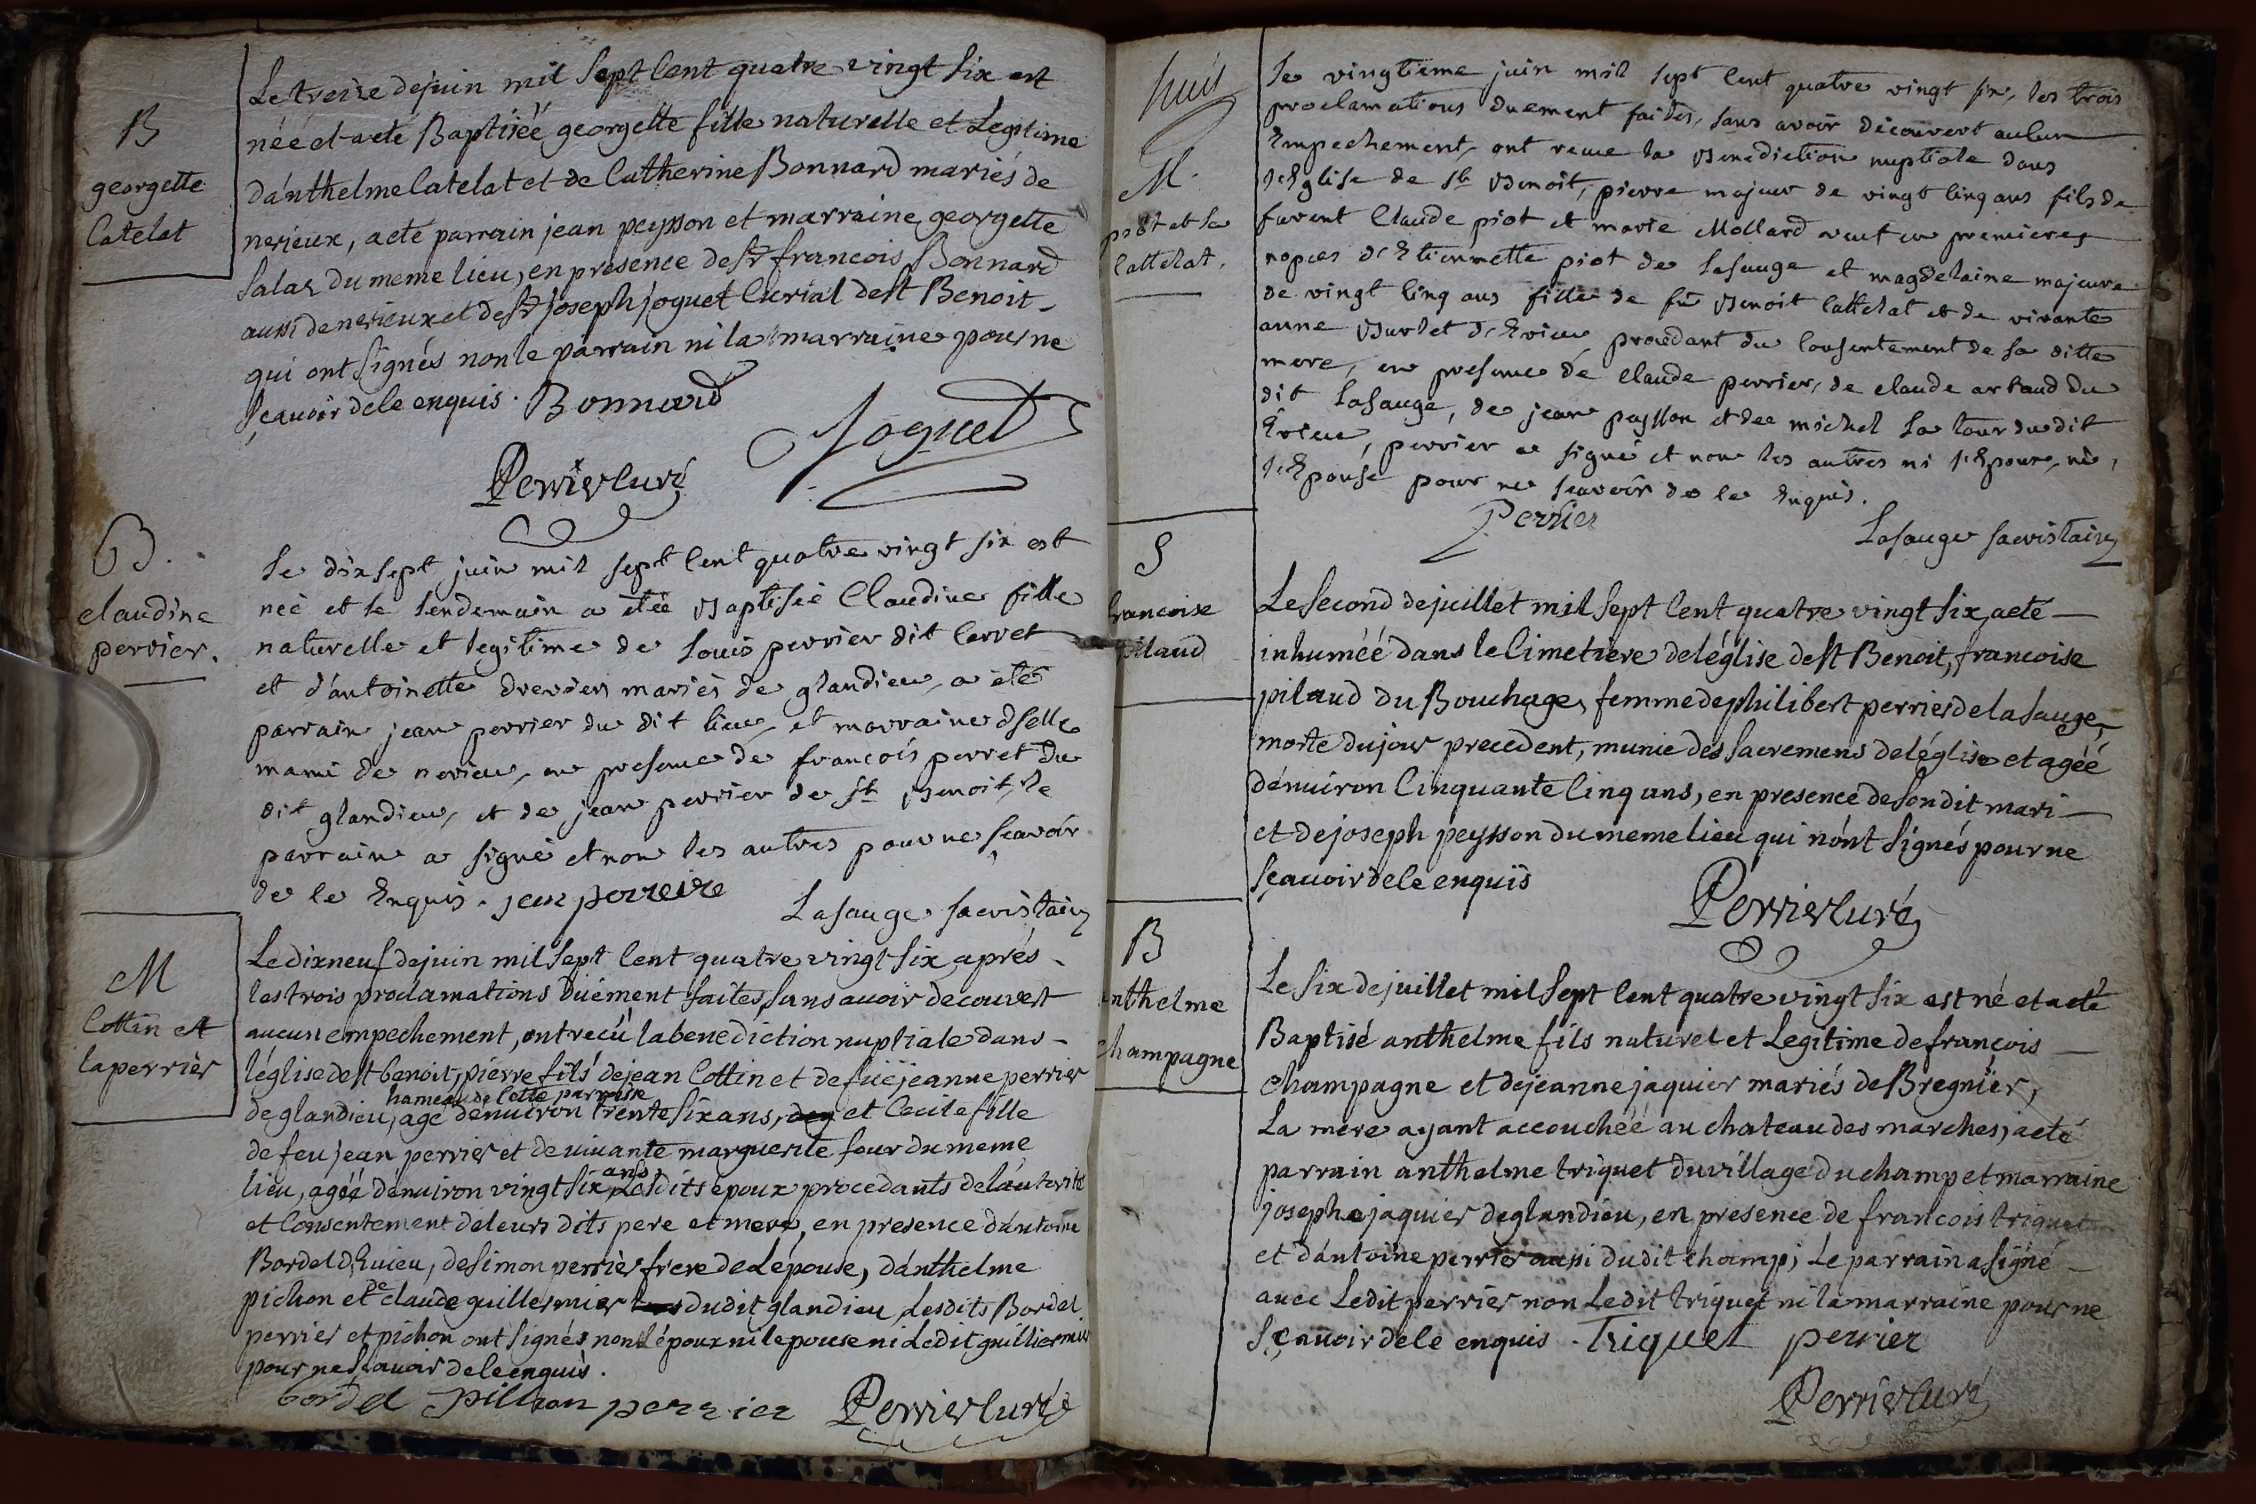 B
georgette
Catelat
Le treize de juin mil sept cent quatre vingt six est
néé et a eté Baptiséé georgette fille naturelle et Legitime
d'anthelme Catelat et de Catherine Bonnard mariés de
nerieux, a eté parrain jean peysson et marraine georgette
du meme lieu, en presence de Sr francois Bonnard
aussi de nerieux et de Sr joseph joguet Curial de St Benoit
qui ont signés non le parrain ni la marraine pour ne
sçavoir de le enquis. Bonnard
Joguet
Perrier Curé
B.
claudine
perrier.
Le dix sept juin mil sept Cent quatre vingt six est
neé et le lendemain a étéé Baptiseé Claudine fille
naturelle et legitime de Louis perrier dit
et d'antoinette mariés de glandieu, a été
parrain jean perrier du dit lieu, et marraine dselle
de nerieu, en presence de francois perret du
dit glandieu, et de jean perrier de St Benoit, le
parrain a signé et non les autres pour ne sçavoir
de le Enquis. jean perreire
Lasauge sacristain
M
Cottin et
la perrier
Le dix neuf de juin mil sept Cent quatre vingt six, après
les trois proclamations duément faites sans avoir decouvert
aucun empechement, ont recû la benediction nuptiale dans
l'église de St benoit, pierre fils de jean Cottin et de fue jeanne perrier
hameau de Cette parroisse
de glandieu, agé denviron trente six ans, et Cecile fille
de feu jean perrier et de vivante marguerite four du meme
ans
lieu, agéé denviron vingt six Lesdits epoux procedants de l'autorité
et Consentement de leurs dits pere et mere, en presence d'antoine
Bordel d'Evieu, de simon perrier frere de L'épouse, d'anthelme
pichon et de claude guillermier dudit glandieu, Lesdits Bordel
perrier et pichon ont signés non l'époux ni lepouse ni Ledit guilliermier
pour ne scavoir de le enquis.
bordel pichon perrier Perrier Curé
huit
M.
piot et la
Cattelat.
Le vingtieme juin mil sept Cent quatre vingt six, les trois
proclamations duement faites, sans avoir decouvert aucun
Empechement, ont recue la Benediction nuptiale dans
l'Eglise de St Benoit, pierre majeur de vingt Cinq ans fils de
furent Claude piot et marie Mollard veuf en premieres
nopces d'Etiennette piot de Lasauge et magdelaine majeure
de vingt Cinq ans fille de fu Benoit Cattelat et de vivante
anne Burlet d'Evieu procedant du Consentement de sa ditte
mere, en presence dé claude perrier, de claude artaud du
dit Lasauge, de jean peysson et de michel La tour du dit
Evieu, perrier a signé et non les autres ni l'Epoux, ni
l'Epouse pour ne scavoir de le Enquis.
Perrier
Lasauge sacristain
S
francoise
pilaud
Le second de juillet mil sept Cent quatre vingt six, a eté
inhuméé dans le Cimetiere de léglise de St Benoit, francoise
pilaud du Bouchage, femme de philibert perrier de la sauge,
morte du jour precedent, munie des sacremens de léglise et agéé
dénviron Cinquante Cinq ans, en presence de son dit mari
et de joseph peysson du meme lieu qui n'ont signés pour ne
sçavoir de le enquis
Perrier Curé
B
anthelme
champagne
Le six de juillet mil sept Cent quatre vingt six est né et a eté
Baptisé anthelme fils naturel et Legitime de francois
champagne et de jeanne jaquier mariés de Bregnier,
La mere ayant accouchéé au chateau des marches, a eté
parrain anthelme triquet du village du champ et marraine
josephe jaquier de glandieu, en presence de francois triquet
et d'antoine perrier aussi du dit champ; Le parrain a signé
avec Ledit perrier non Ledit triquet ni la marraine pour ne
sçavoir de le enquis. Triquet perrier
Perrier Curé